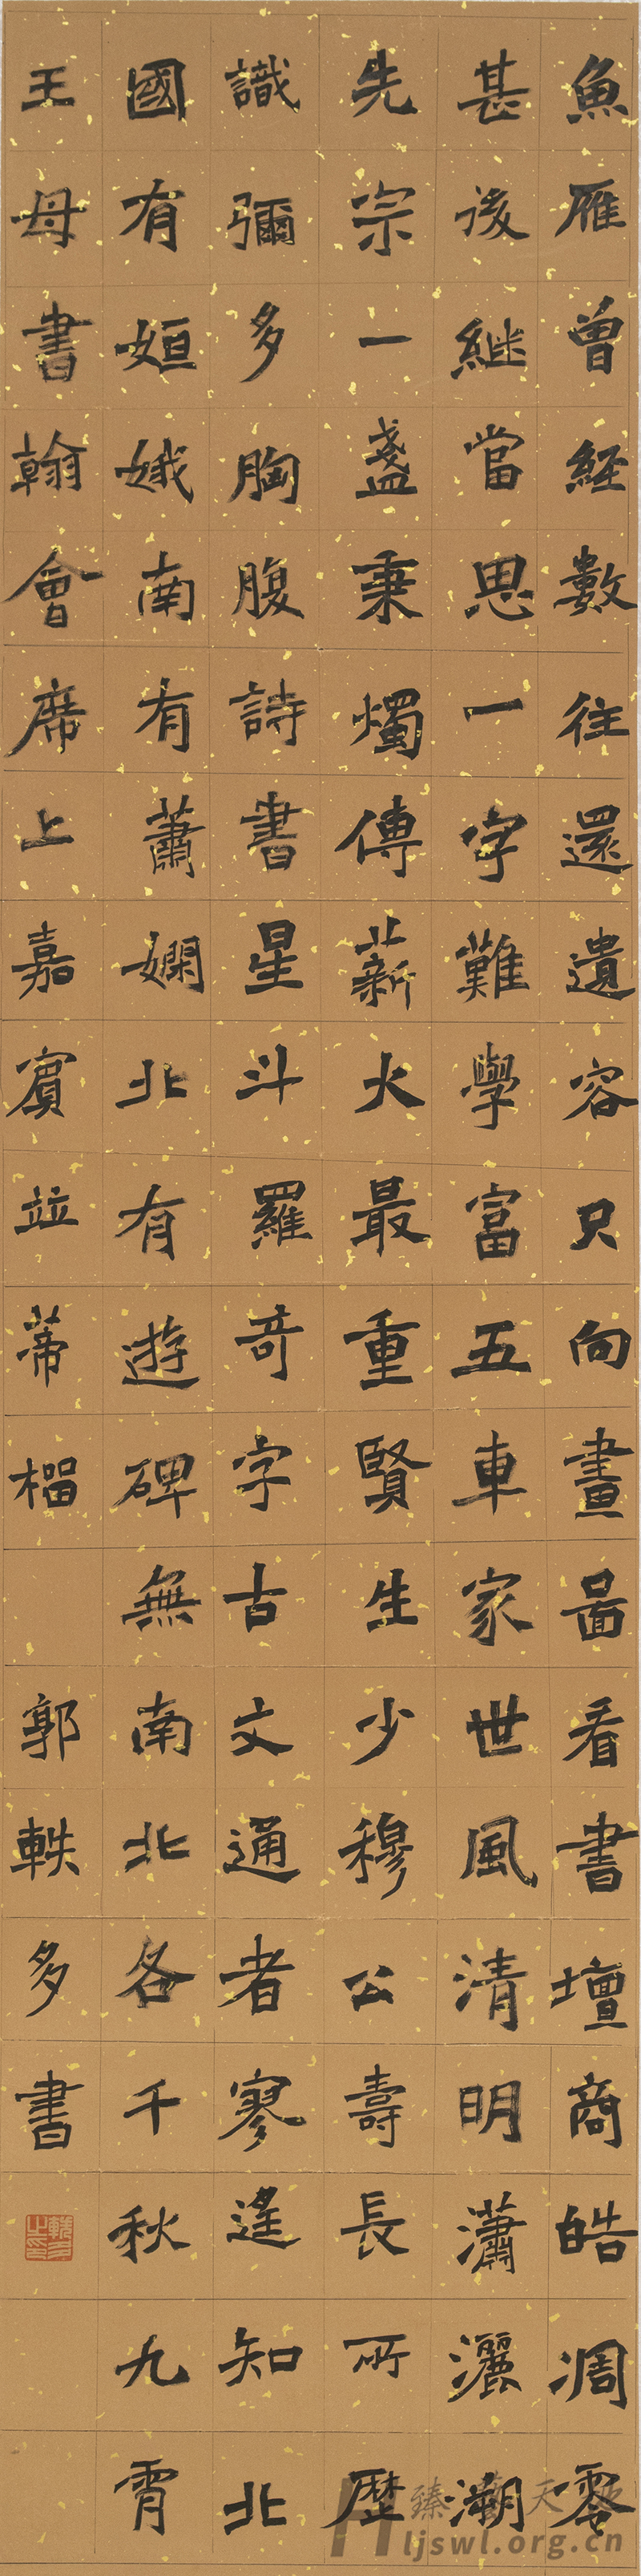 魚雁曾經數往還遺容只向畫啚看書壇商皓凋零
甚後繼當思一字難學富五車家世風清明瀟灑潮
先宗一盞秉燭傳薪火最重賢生少穆公壽長所歷
識彌多胸腹詩書星斗羅奇字古文通者寥逢知北
國有姮娥南有蕭嫻北有遊碑無南北各千秋九霄
王母書翰會席上嘉賓竝蒂榴 郭軼多書
軼多之印
Hljswl.org.cn